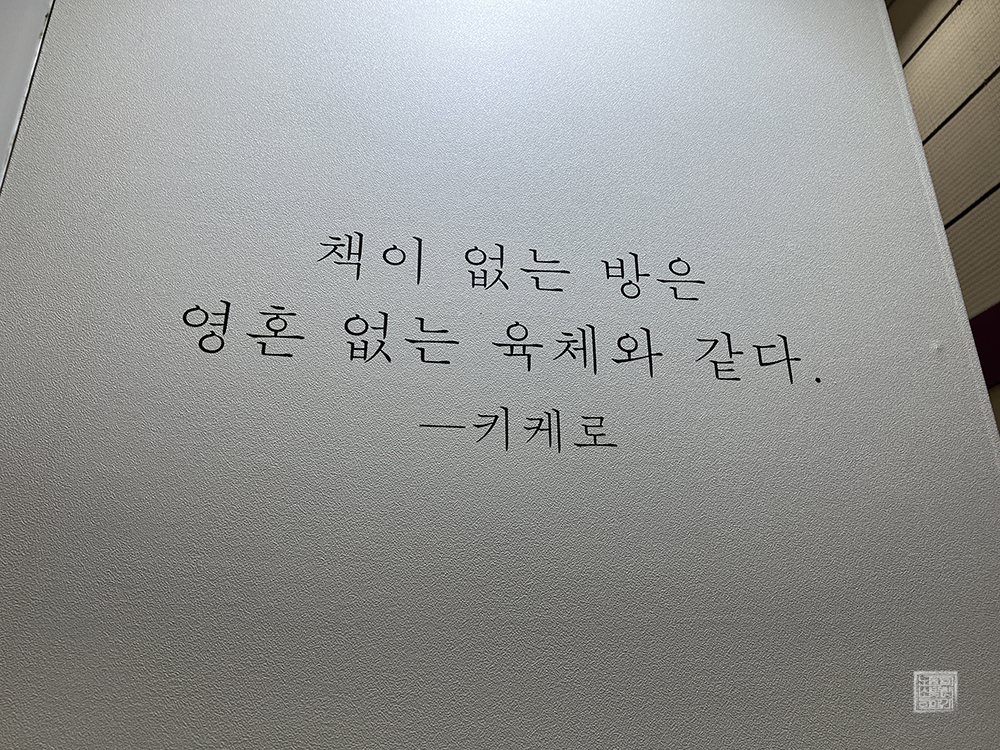 책이 없는 방은
영혼 없는 육체와 같다.
—키케로